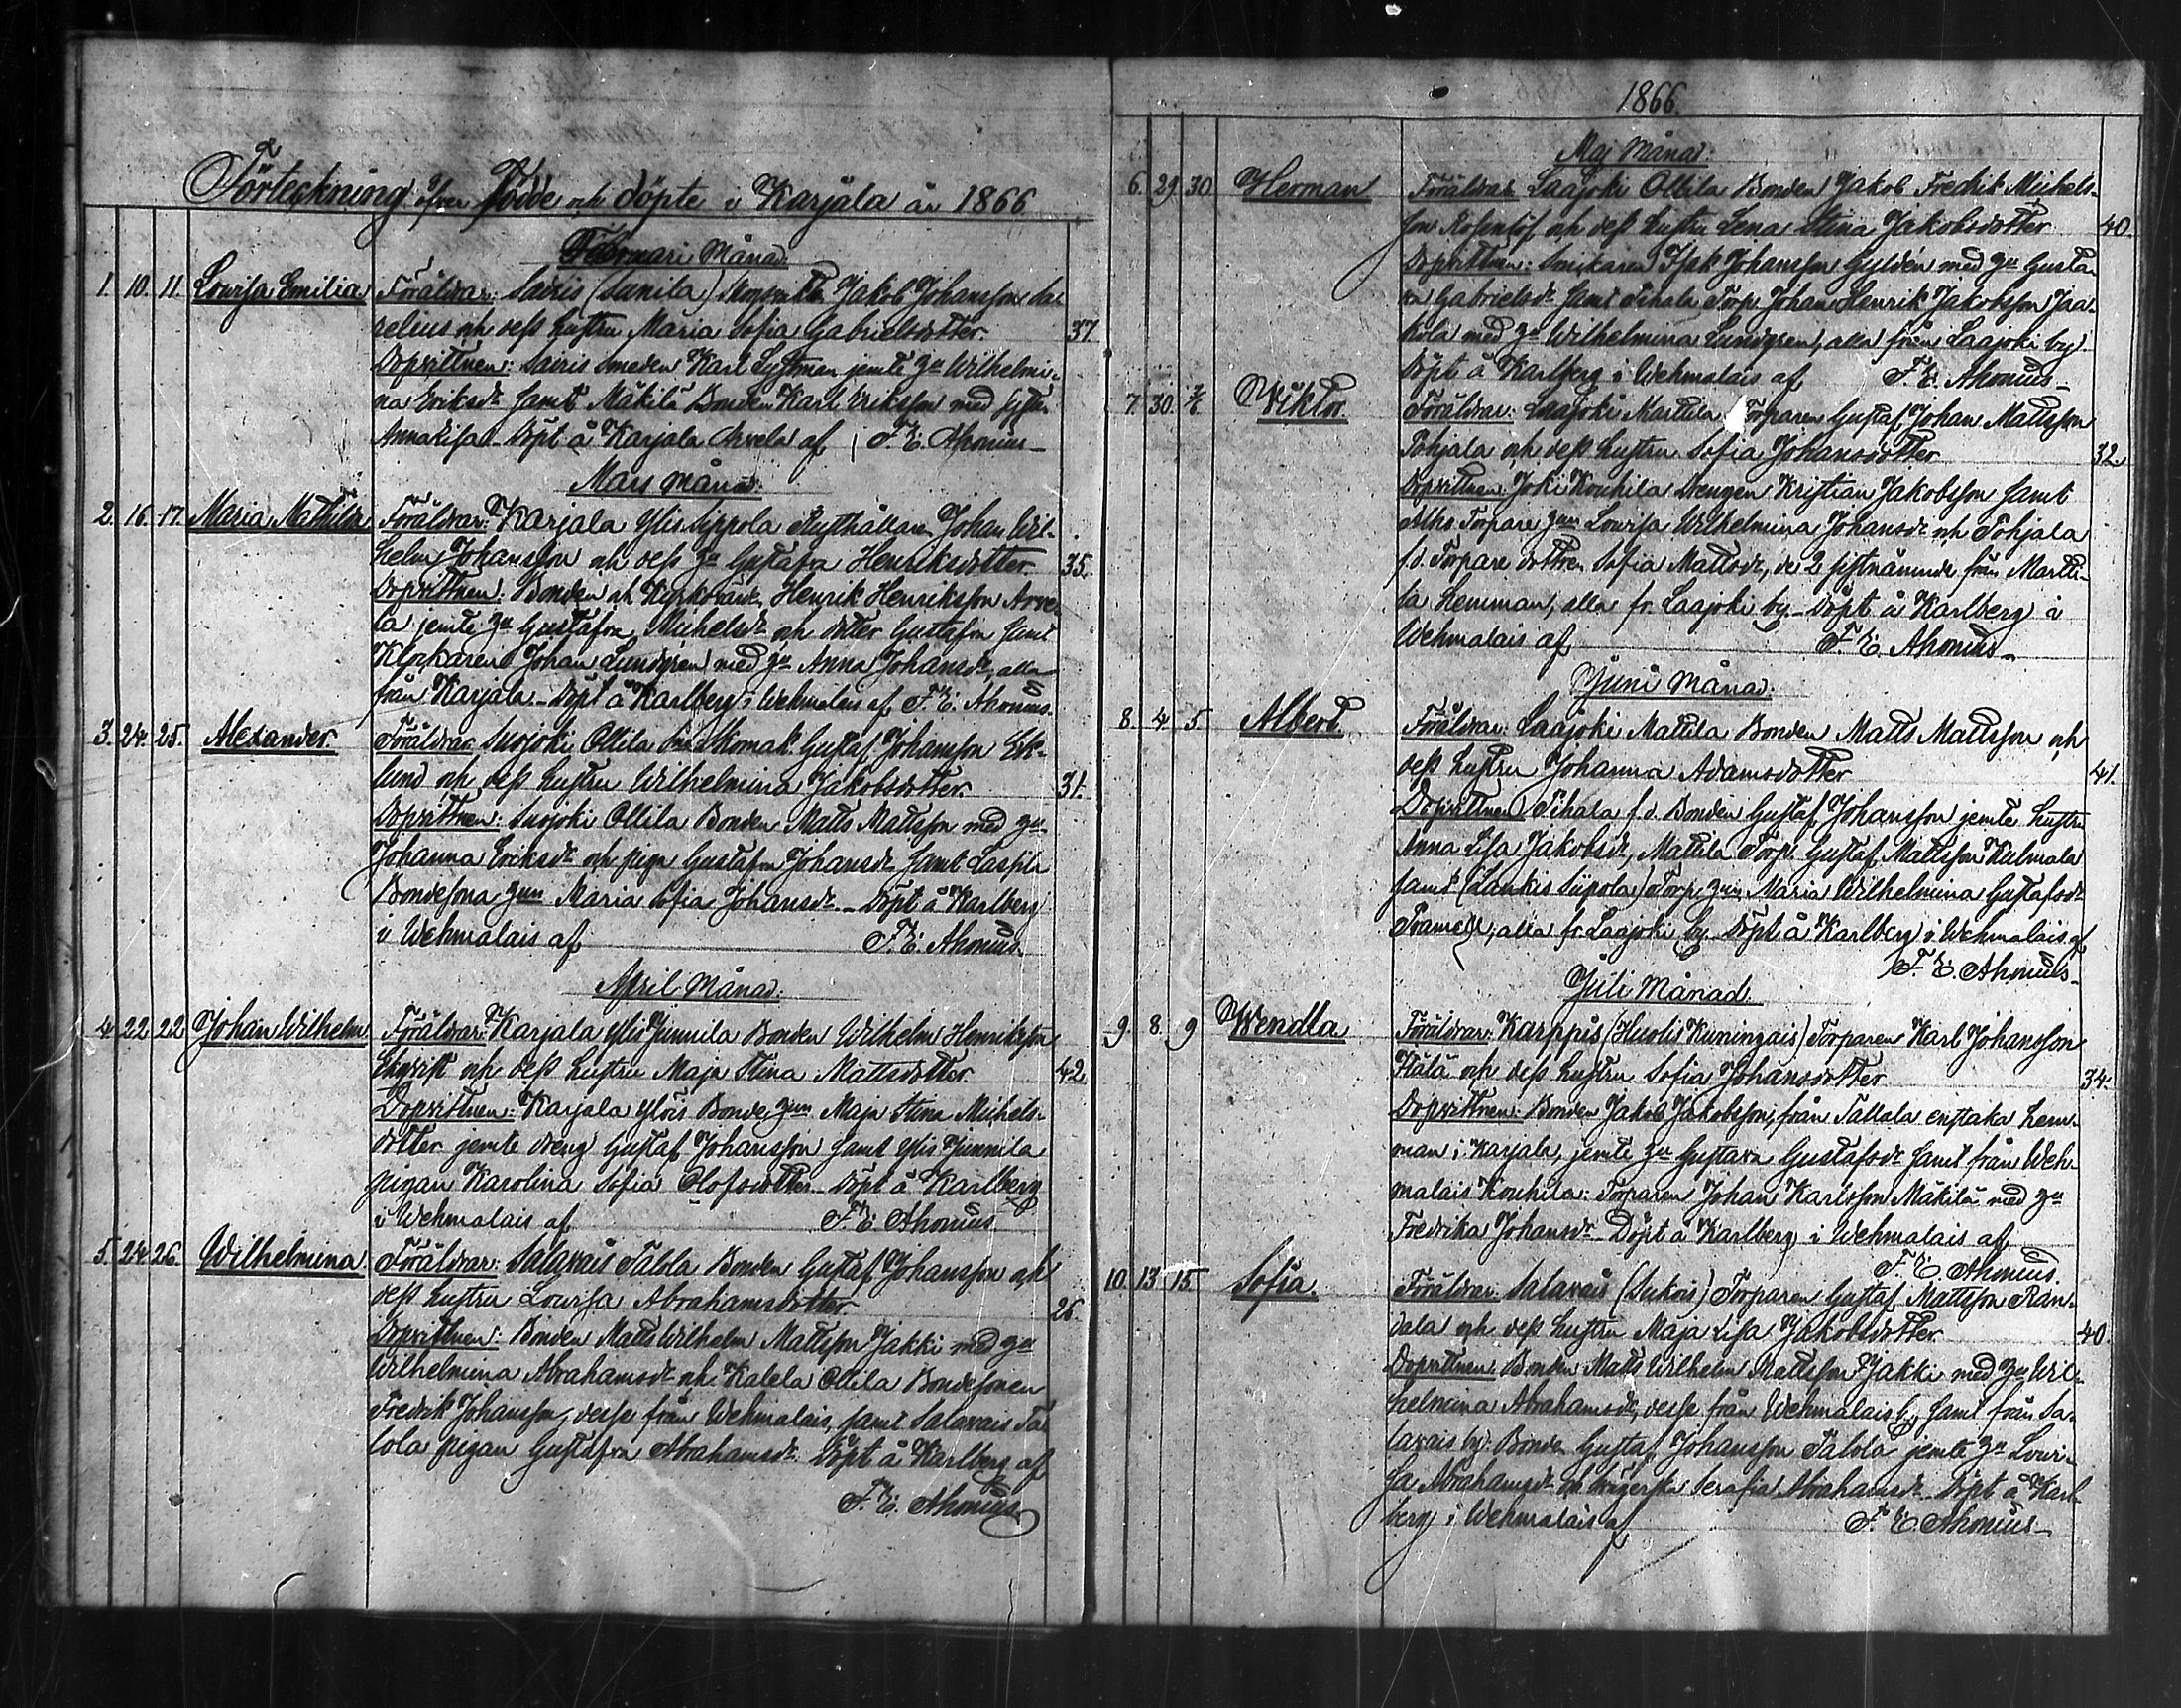 Förteckning öfver Födde och döpte i Karjala år 1866
Februari Månad.
1. 10. 11. Lovisa Emilia Föräldrar: Sairis (Sunila) Jakob Johansson Sa-
relius och dess hustru Maria Sofia Gabrielsdotter. 37
Dopvittnen: Sairis smeden Karl Lystman jemte hu Wilhelmi-
na Eriksdr samt Mäkilä Bonden Karl Eriksson med hustru
Anna Lisa. Döpt å Karjala Arvela af F. E. Ahonius
Mars månad.
2. 16. 17. Maria Mathilda Föräldrar: Karjala Ylis Sippola Rusthållaren Johan Wil-
helm Johansson och dess hu Gustafva Henriksdotter. 35.
Dopvittnen: Bonden och Kyrkovärd. Henrik Henriksson Arve-
la jemte hu Gustafva Michelsdr och dotter Gustafva samt
Klockaren Johan Lundgren med hu Anna Johansdr, alla
från Karjala. Döpt å Karlberg i Wehmalais af F. E. Ahonius.
3. 24. 25. Alexander. Föräldrar Suojoki Ollila Skomak. Gustaf Johansson Ek-
lund och dess hustru Wilhelmina Jakobsdotter. 31.
Dopvittnen: Suojoki Ollila Bonden Matts Mattsson med hu
Johanna Eriksdr och pigan Gustafva Johansdr samt Laspila
Bondesona hun Maria Sofia Johansdr. Döpt å Karlberg
i Wehmalais af F. E. Ahonius.
April Månad.
4. 22 22 Johan Wilhelm. Föräldrar: Karjala Ylis Junnila Bonden Wilhelm Henriksson
Ekqvist och dess hustru Maja Stina Mattsdotter. 42
Dopvittnen: Karjala Ylöis Bonde hun Maja Stina Michels-
dotter jemte dreng Gustaf Johansson samt Ylis Junnila
pigan Karolina Sofia Olofsdotter. Döpt å Karlberg
i Wehmalais af F. E. Ahonius.
5. 24. 26. Wilhelmina Föräldrar: Salavais Talola Bonden Gustaf Johansson och
dess hustru Lovisa Abrahamsdotter 26.
Dopvittnen: Bonden Matts Wilhelm Mattsson Jakki med hu
Wilhelmina Abrahamsdr och Kalela Ollila Bondesonen
Fredrik Johansson, desse från Wehmalais, samt Salavais Ta-
lola pigan Gustafva Abrahamsdr. Döpt å Karlberg af
F. E. Ahonius
1866.
Maj Månad.
6. 29 30 Herman Föräldrar Laajoki Ollila Bonden Jakob Fredrik Michels-
son Rosenlöf och dess hustru Lena Stina Jakobsdotter 40.
Dopvittnen: Snickaren Isak Johansson Gyldén med hu Gusta-
va Gabrielsdr samt Pihala Torp. Johan Henrik Jakobsson Jaa-
kola med hu Wilhelmina Lundgren, alla från Laajoki by.
Döpt å Karlberg i Wehmalais af F. E. Ahonius
7. 30. 2/6 Wiktor. Föräldrar: Laajoki Marttila Torparen Gustaf Johan Mattsson
Pohjala och dess hustru Sofia Johansdotter 32.
Dopvittnen Joki Kouhila Drengen Kristian Jakobsson samt
Torpare hun Lovisa Wilhelmina Johansdr och Pohjala
f.d. Torpare dottren Sofia Mattsdr, de 2 sistnämnde från Martti-
la Hemman, alla fr. Laajoki by. Döpt å Karlberg i
Wehmalais af F. E. Ahonius
Juni Månad.
8. 4. 5 Albert. Föräldrar: Laajoki Mattila Bonden Matts Mattsson och
dess hustru Johanna Adamsdotter 41.
Dopvittnen Pihala f.d. Bonden Gustaf Johansson jemte hustru
Anna Lisa Jakobsdr, Mattila Torp. Gustaf Mattsson Kulmala
samt (Laukis Siipola) Torp. hun Maria Wilhelmina Gustafsdr
Framell, alla fr Laajoki by. Döpt å Karlberg i Wehmalais af
F. E. Ahonius
Juli Månad.
9. 8. 9 Wendla Föräldrar: Karppis (Huolis Kuningais) Torparen Karl Johansson
Hälä och dess hustru Sofia Johansdotter 34.
Dopvittnen: Bonden Jakob Jakobsson, från Tallala enstaka hem-
man i Karjala, jemte hu Gustava Gustafsdr samt från Weh-
malais Kouhila: Torparen Johan Karlsson Mäkilä med hu
Fredrika Johansdr. Döpt å Karlberg i Wehmalais af
F. E. Ahonius.
10. 13. 15. Sofia. Föräldrar: Salavais (Sukois) Torparen Gustaf Mattsson Ran-
dala och dess hustru Maja Lisa Jakobsdotter 40
Dopvittnen: Bonden Matts Wilhelm Mattsson Jakki med hu Wil-
helmina Abrahamsdr, desse från Wehmalais by, samt från Sa-
lavais by: Bonden Gustaf Johansson Talola jemte hu Lovi-
sa Abrahamsdr och svägerska Serafia Abrahamsdr. Döpt å Karl-
berg i Wehmalais af F. E. Ahonius